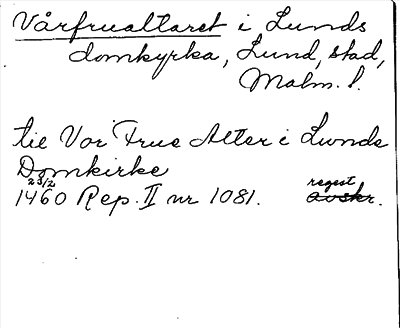 Vårfrualtaret i Lunds
domkyrka, Lund, stad,
Malm. l.
tie Vor Frue Alter i Lunds
Domkirke
23/2
1460 Rep. II nr 1081. regest
avskr.